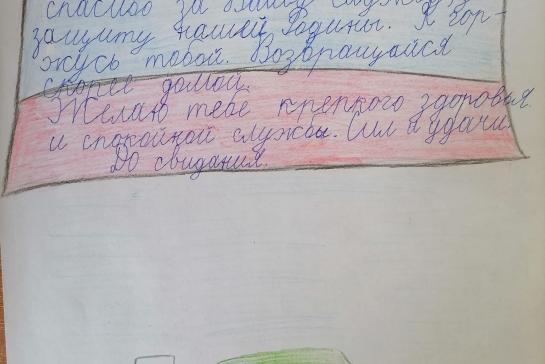 спасибо за Вашу службу, за
защиту нашей Родины. Я гор-
жусь тобой. Возвращайся
скорее домой.
Желаю тебе крепкого здоровья
и спокойной службы. Сил и удачи.
До свидания.